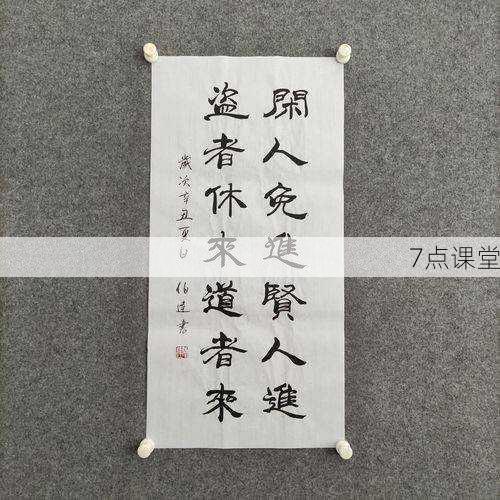 閑人免進賢人進
盜者休來道者來
歲次辛丑夏日 伯達書
7点课堂